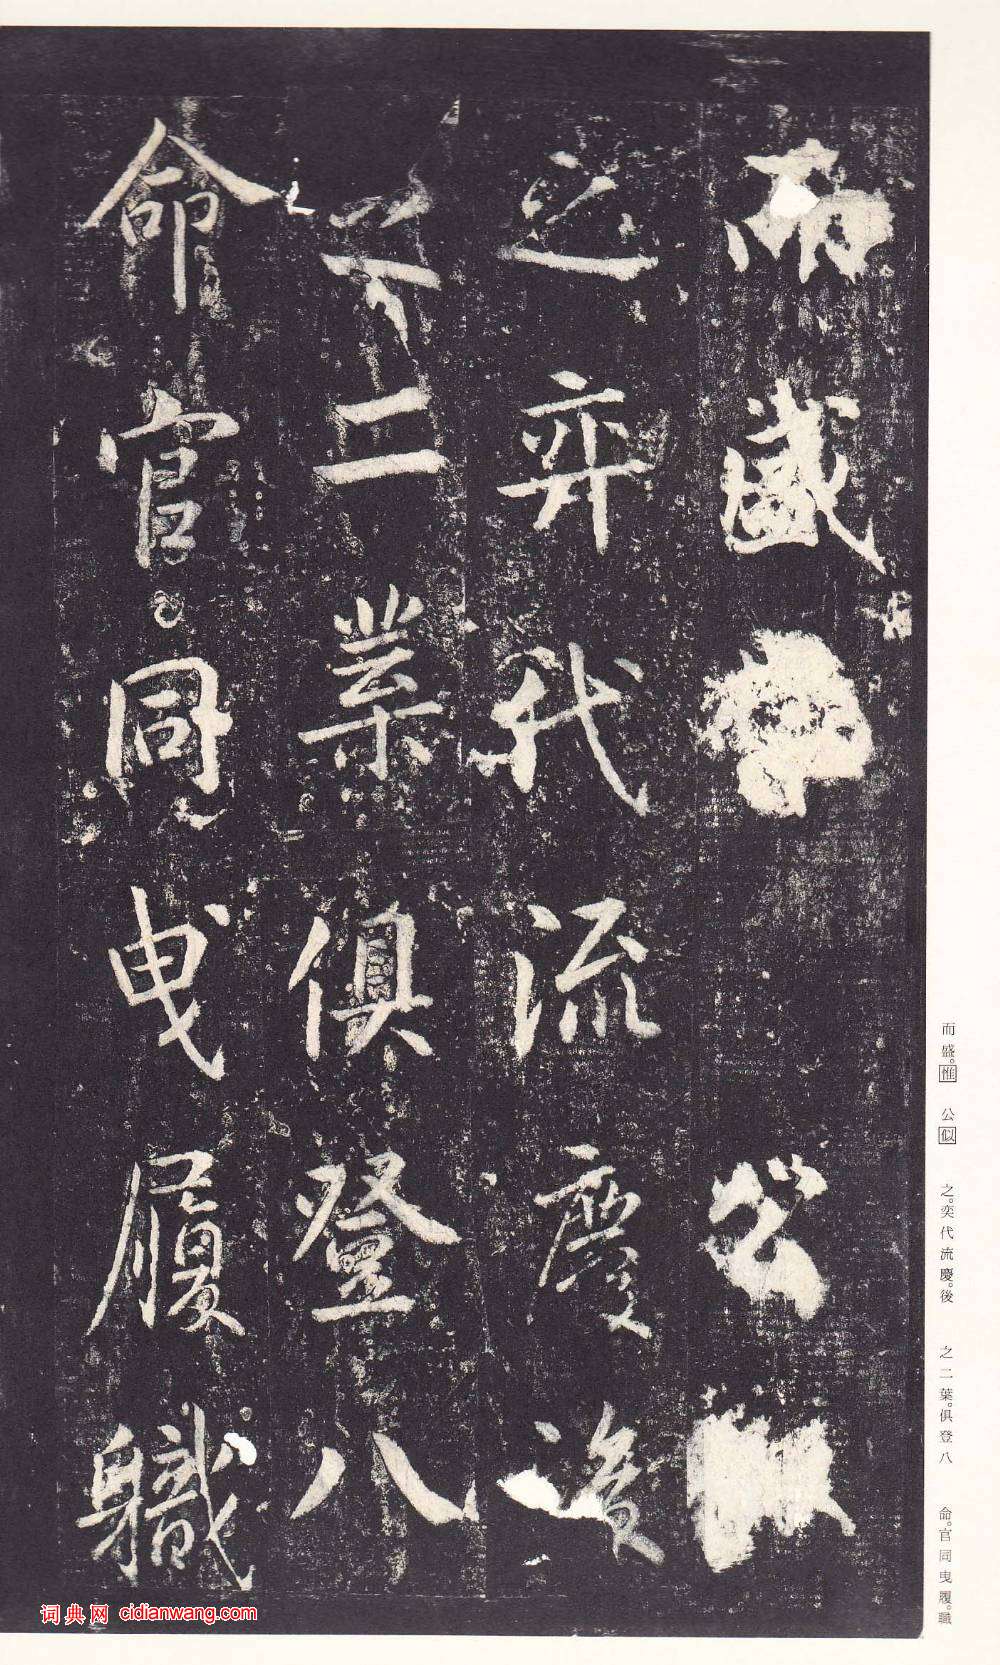 而盛公
之弈代流慶後
之二葉俱登八
命官同曳履職
而盛。惟 公似 之。奕代流慶。後 之二葉。俱登八 命。官同曳履。職
词典网 cidianwang.com